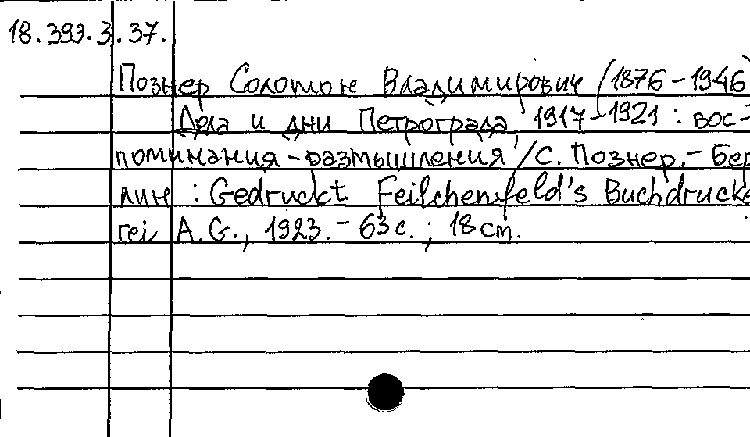 18.393.3.37.
Познер Соломон Владимирович (1876-1946)
Дела и дни Петрограда 1917-1921 : вос-
поминания-размышления / С. Познер. - Бер
лин : Gedruckt Feilchenfeld's Buchdrucke
rei A.G., 1923. - 63 с. ; 18 cm.